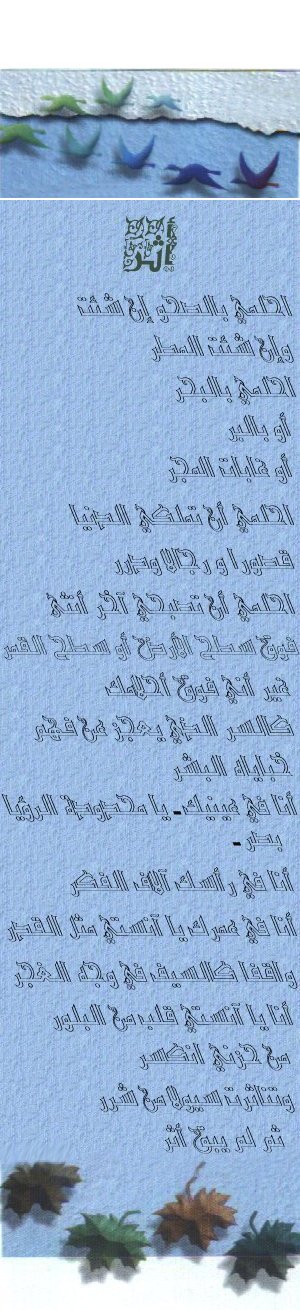 أثر
احلمي بالصحو إن شئت
وإن شئت المطر
احلمي بالبحر
أو بالبر
أو غابات المجر
احلمي أن تملكي الدنيا
قصورا و رجالا ودرر
احلمي أن تصبحي آخر أنثى
فوق سطح الأرض أو سطح القمر
غير أني فوق أحلامك
كالسر الذي يعجز عن فهم
خباياه البشر
أنا في عينيك .. يا محدودة الرؤيا
بصر ..
أنا في رأسك آلاف الفكر
أنا في عمرك يا آنستي مثل القدر
واقفا كالسيف في وجه الغجر
أنا يا آنستي قلب من البلور
من حزني انكسر
وتناثرت سيولا من شرر
ثم لم يبق أثر